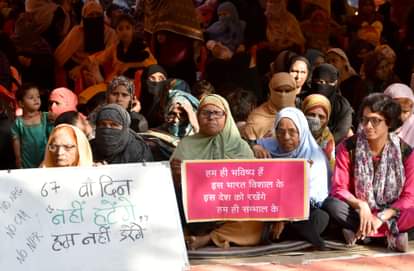 NO NRC
NO CAA
NO NPR
67 वाँ दिन
"नहीं हटेंगे
हम नहीं डरेंगे"
हम ही भविष्य है
इस भारत विशाल के
इस देश को रखेंगे
हम ही सम्भाल के